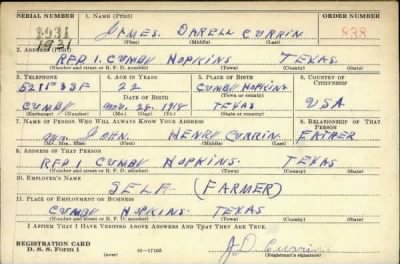 SERIAL NUMBER 1. NAME (Print) ORDER NUMBER
1931 JAMES. DARELL CURRIN 838
1931 (First) (Middle) (Last)
2. ADDRESS (Print)
RFD 1. CUMBY HOPKINS TEXAS.
(Number and street or R. F. D. number) (Town) (County) (State)
3. TELEPHONE 4. AGE IN YEARS 5. PLACE OF BIRTH 6. COUNTRY OF CITIZENSHIP
22 CUMBY HOPKINS
DATE OF BIRTH (Town or county)
CUMBY NOV. 28. 1918 TEXAS USA
(Exchange) (Number) (Mo.) (Day) (Yr.) (State or country)
7. NAME OF PERSON WHO WILL ALWAYS KNOW YOUR ADDRESS 8. RELATIONSHIP OF THAT PERSON
MR. JOHN. HENRY CURRIN. FATHER
(Mr., Mrs., Miss) (First) (Middle) (Last)
9. ADDRESS OF THAT PERSON
RFD 1 CUMBY HOPKINS. TEXAS
(Number and street or R. F. D. number) (Town) (County) (State)
10. EMPLOYER'S NAME
SELF (FARMER)
11. PLACE OF EMPLOYMENT OR BUSINESS
CUMBY HOPKINS. TEXAS
(Number and street or R. F. D. number) (Town) (County) (State)
I AFFIRM THAT I HAVE VERIFIED ABOVE ANSWERS AND THAT THEY ARE TRUE.
REGISTRATION CARD
D. S. S. Form 1 (over) J D Currin
(Registrant's signature)